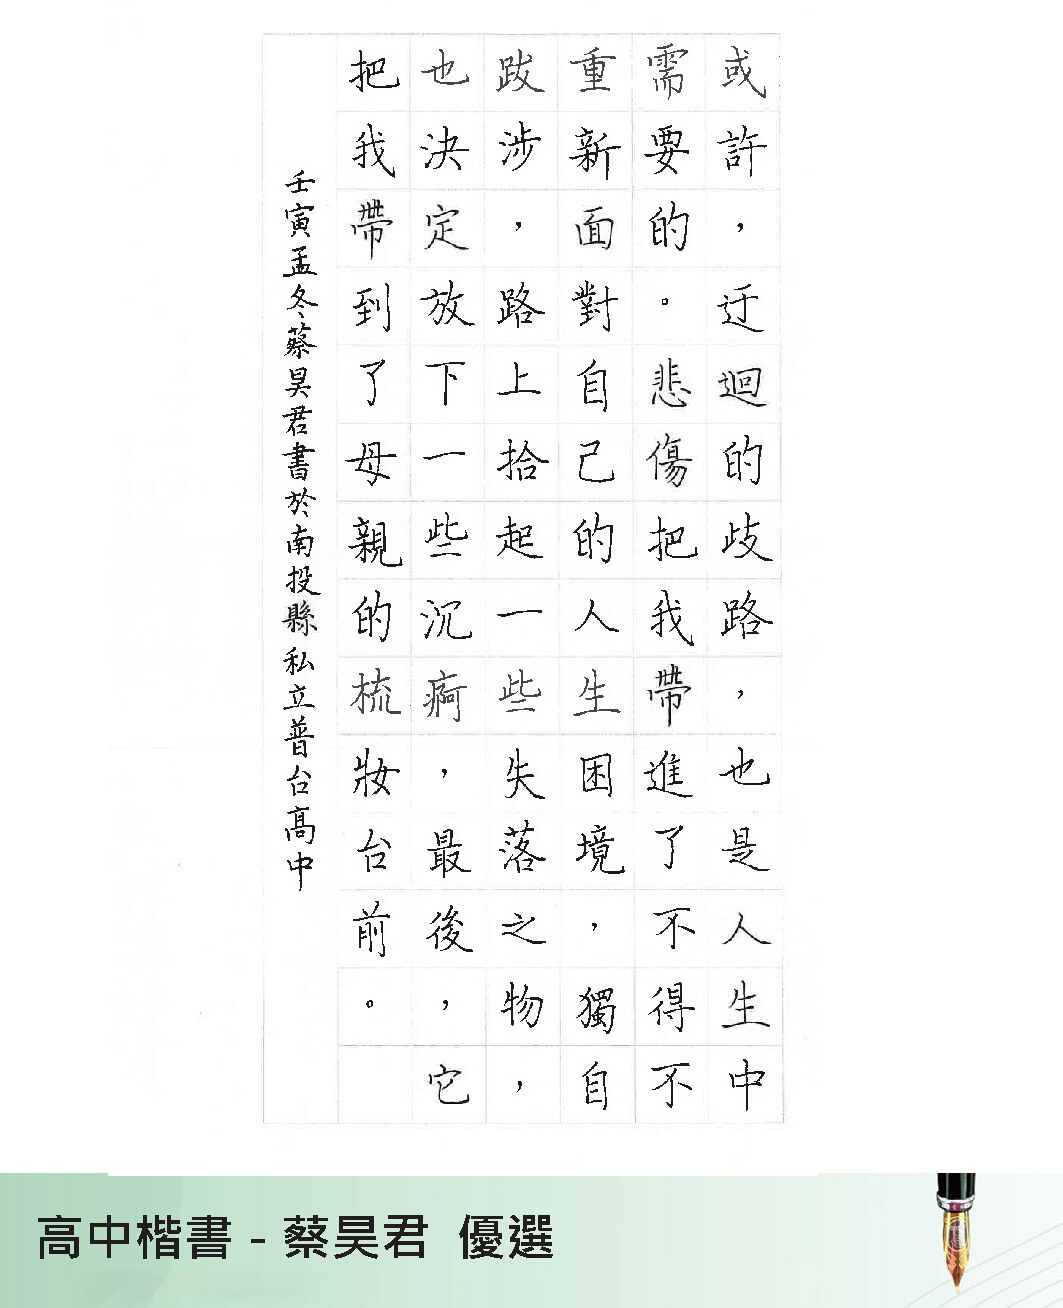 或許，迂迴的歧路，也是人生中
需要的。悲傷把我帶進了不得不
重新面對自己的人生困境，獨自
跋涉，路上拾起一些失落之物，
也決定放下一些沉痾，最後，它
把我帶到了母親的梳妝台前。
壬寅孟冬蔡昊君書於南投縣私立普台高中
高中楷書 - 蔡昊君 優選